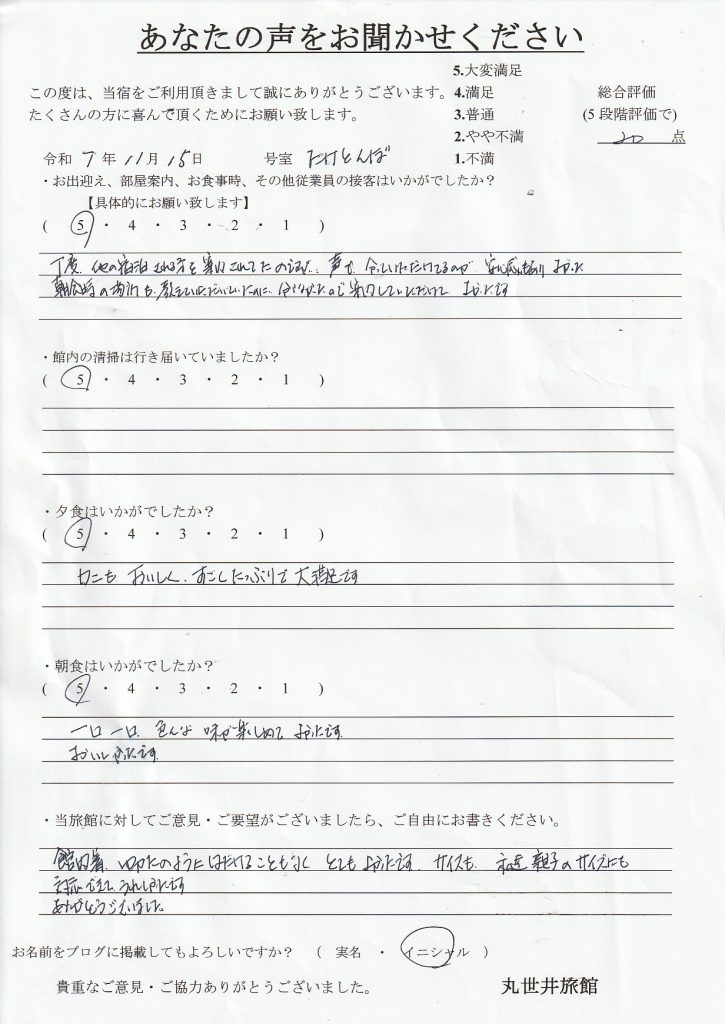 あなたの声をお聞かせください
この度は、当宿をご利用頂きまして誠にありがとうございます。
たくさんの方に喜んで頂くためにお願い致します。
5.大変満足
4.満足
3.普通
2.やや不満
1.不満
総合評価
(5段階評価で)
点
令和 7 年 11 月 15 日 号室 たけとんぼ
・お出迎え、部屋案内、お食事時、その他従業員の接客はいかがでしたか?
【具体的にお願い致します】
( 5 ・ 4 ・ 3 ・ 2 ・ 1 )
丁度、他の宿泊される方を案内されてたのですが、声も
朝食時の場所も、教えていただいていたのに、案内していただけて よかったです
・館内の清掃は行き届いていましたか?
( 5 ・ 4 ・ 3 ・ 2 ・ 1 )
・夕食はいかがでしたか?
( 5 ・ 4 ・ 3 ・ 2 ・ 1 )
カニも おいしく、すごくたっぷりで 大満足です
・朝食はいかがでしたか?
( 5 ・ 4 ・ 3 ・ 2 ・ 1 )
一口一口、色んな 味が楽しめて よかったです
おいしかったです
・当旅館に対してご意見・ご要望がございましたら、ご自由にお書きください。
館内着 ゆかたのようにはだけることもなく とても よかったです サイズも 親子のサイズにも
対応できて うれしかったです
ありがとうございました
お名前をブログに掲載してもよろしいですか? ( 実名 ・ イニシャル )
貴重なご意見・ご協力ありがとうございました。
丸世井旅館